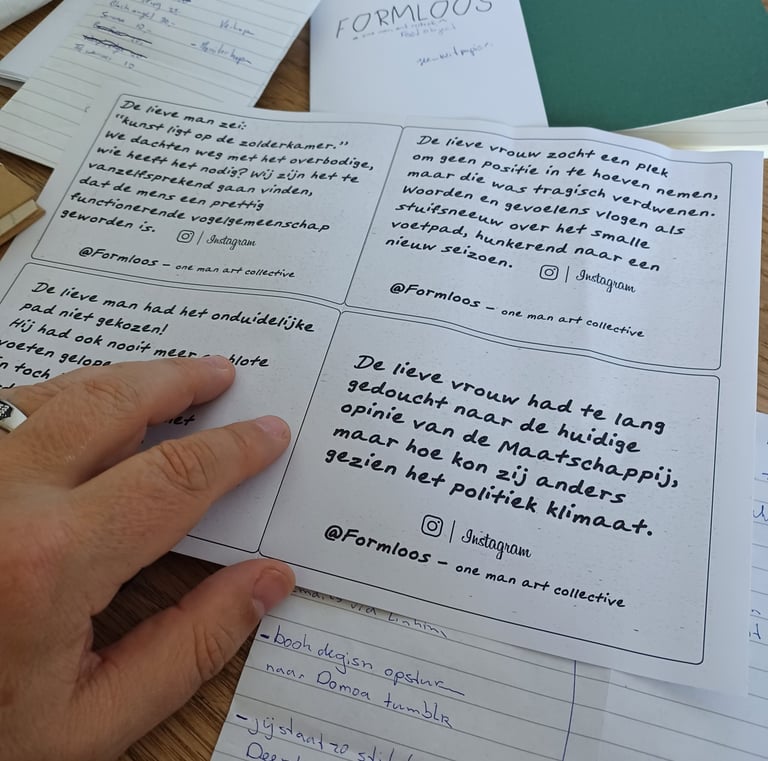 FORMLOOS
De lieve man zei:
"kunst ligt op de zolderkamer."
We dachten weg met het overbodige,
wie heeft het nodig? Wij zijn het te
vanzelfsprekend gaan vinden,
dat de mens een prettig
functionerende vogelgemeenschap
geworden is.
Instagram
@Formloos – one man art collective
De lieve vrouw zocht een plek
om geen positie in te hoeven nemen,
maar die was tragisch verdwenen.
Woorden en gevoelens vlogen als
stuifsneeuw over het smalle
voetpad, hunkerend naar een
nieuw seizoen.
Instagram
@Formloos – one man art collective
De lieve man had het onduidelijke
pad niet gekozen!
Hij had ook nooit meer
toch
De lieve vrouw had te lang
gedoucht naar de huidige
opinie van de Maatschappij,
maar hoe kon zij anders
gezien het politiek klimaat.
Instagram
@Formloos – one man art collective
via
- book degisn
naar Domoa tumblr
- jij staat zo